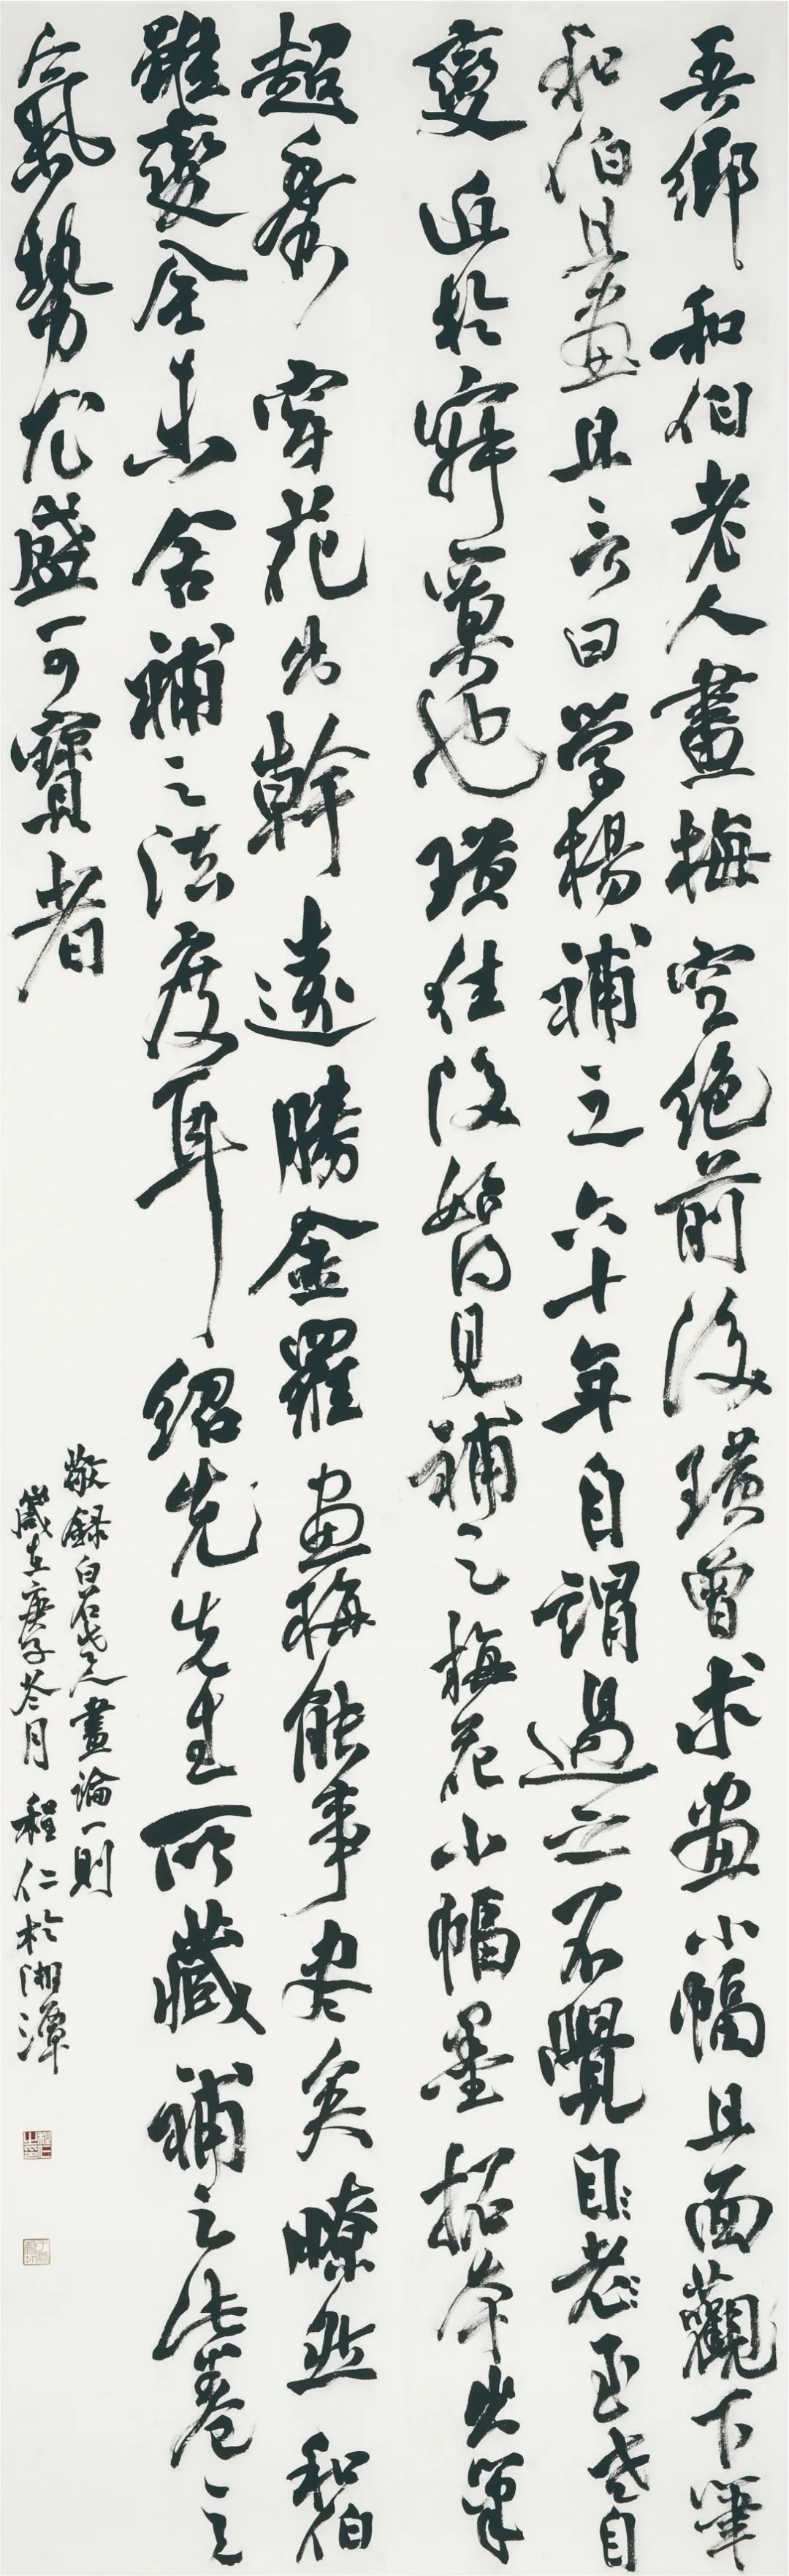 吾鄉和伯老人畫梅空絕前後璜曾求畫小幅且面觀下筆
和伯且畫且言曰学楊補之六十年自謂過之不覺自老至老自
變近於寂寞也璜往後始得見補之梅花小幅墨拓本出筆
超秀穿花出幹遠勝金羅畫梅能事盡矣瞭然和伯
雖變金未舍補之法度耳紹先先生所藏補之此卷之
氣勢尤盛可寶者
敬錄白石老人畫論一則
歲在庚子冬月程仁於湘潭